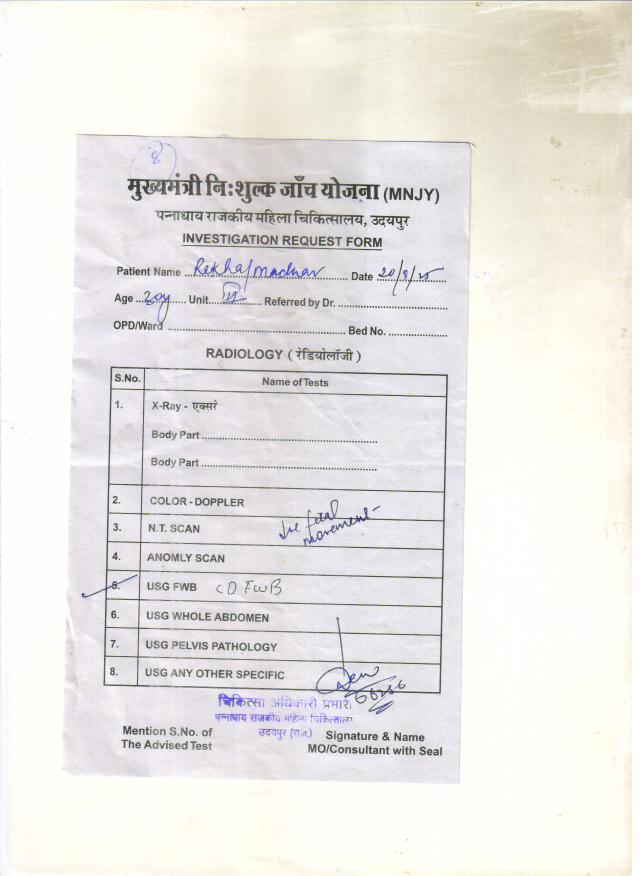 8
मुख्यमंत्री निःशुल्क जाँच योजना (MNJY)
पन्नाधाय राजकीय महिला चिकित्सालय, उदयपुर
INVESTIGATION REQUEST FORM
Patient Name ... Rekha/ ... Date 20/8/25
Age ... 20y ... Unit ... Referred by Dr. ...
OPD/Ward ... Bed No. ...
RADIOLOGY ( रेडियोलॉजी )
S.No. Name of Tests
1. X-Ray - एक्सरे
Body Part ...
Body Part ...
2. COLOR - DOPPLER
3. N.T. SCAN
fetal
movement
4. ANOMLY SCAN
5. USG FWB CD FWB
6. USG WHOLE ABDOMEN
7. USG PELVIS PATHOLOGY
8. USG ANY OTHER SPECIFIC
चिकित्सा अधिकारी प्रभारी
पन्नाधाय राजकीय महिला चिकित्सालय
उदयपुर (राज.)
Mention S.No. of
The Advised Test
Signature & Name
MO/Consultant with Seal